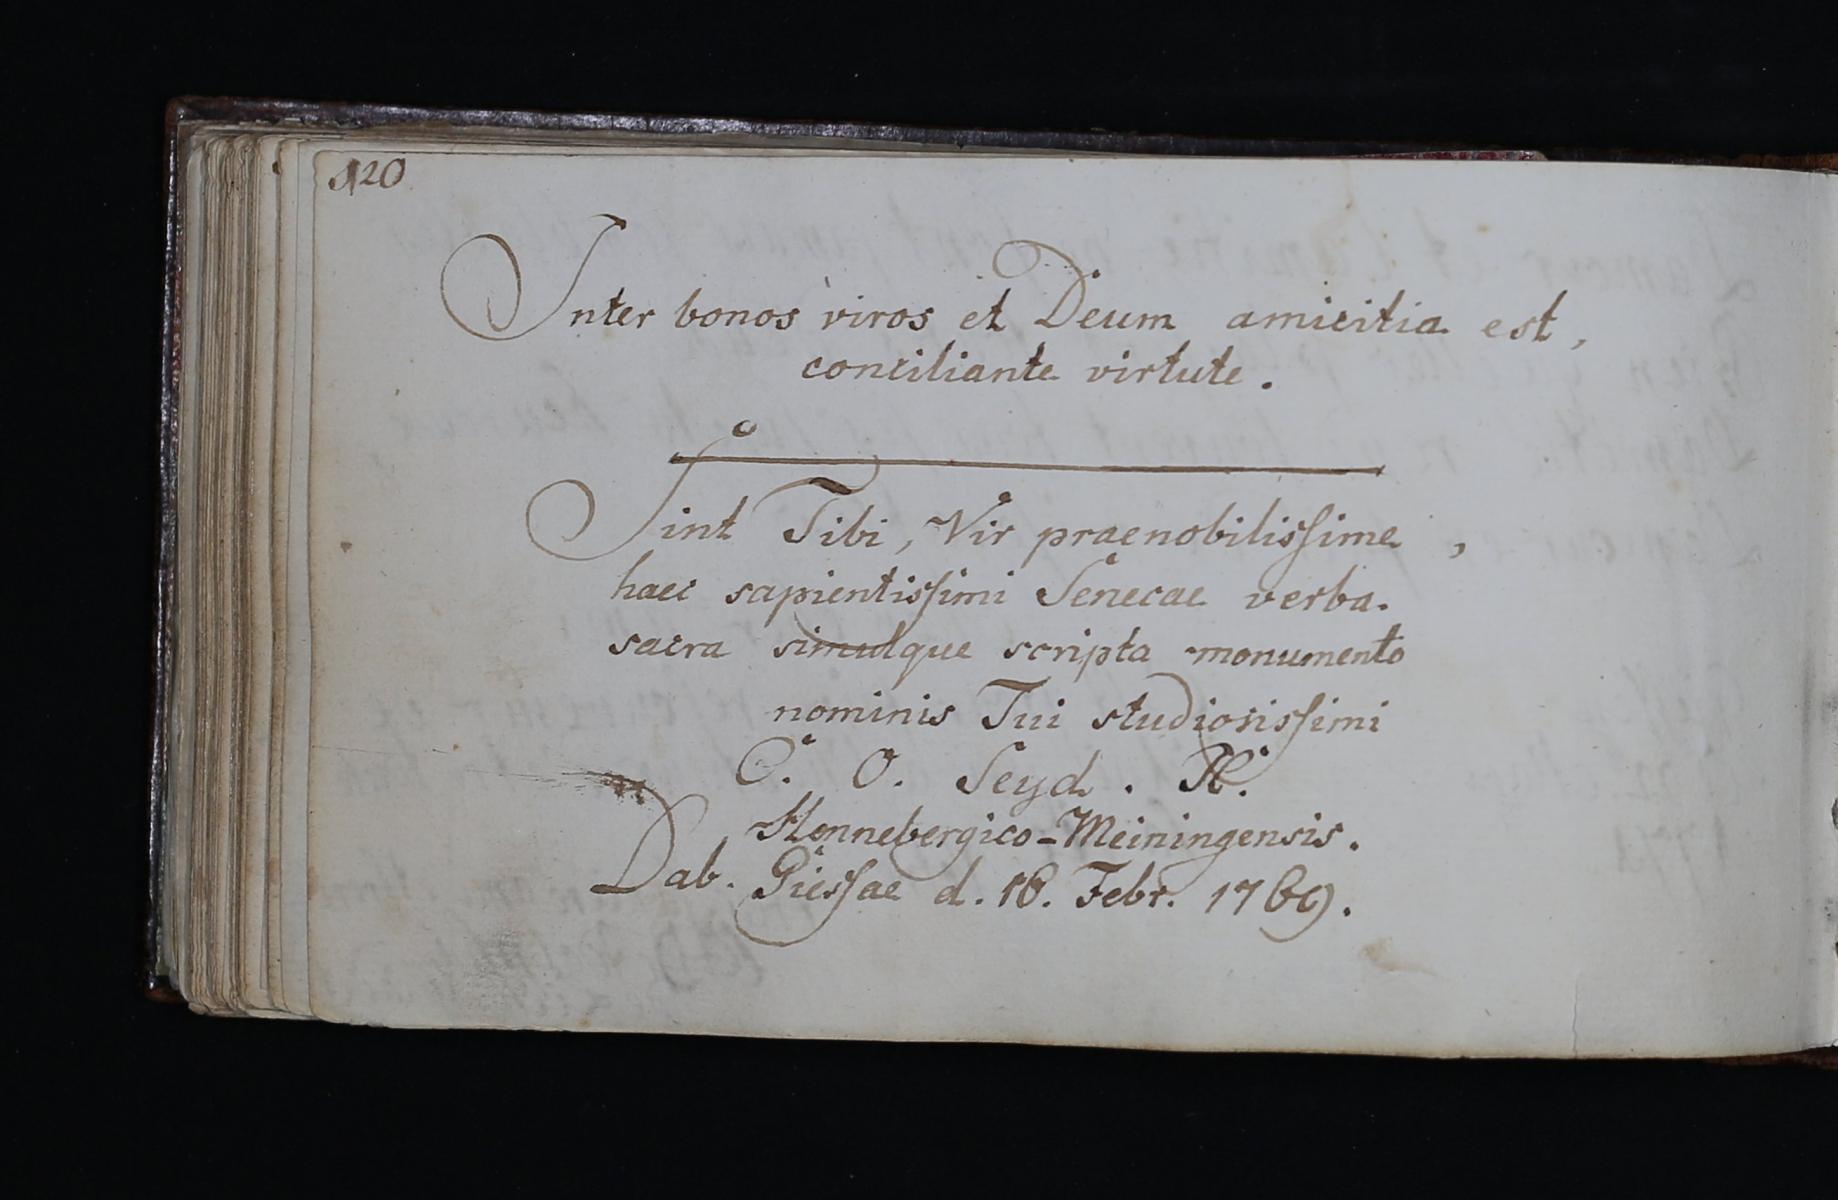 120
Inter bonos viros et Deum amicitia est,
conciliante virtute.
Sint Tibi, Vir praenobilissime,
haec sapientissimi Senecae verba
sacra simulque scripta monumento
nominis Tui studiosissimi
C. O. Seyd. H.
Hennebergico-Meiningensis.
Dab. Giessae d. 16. Febr. 1769.